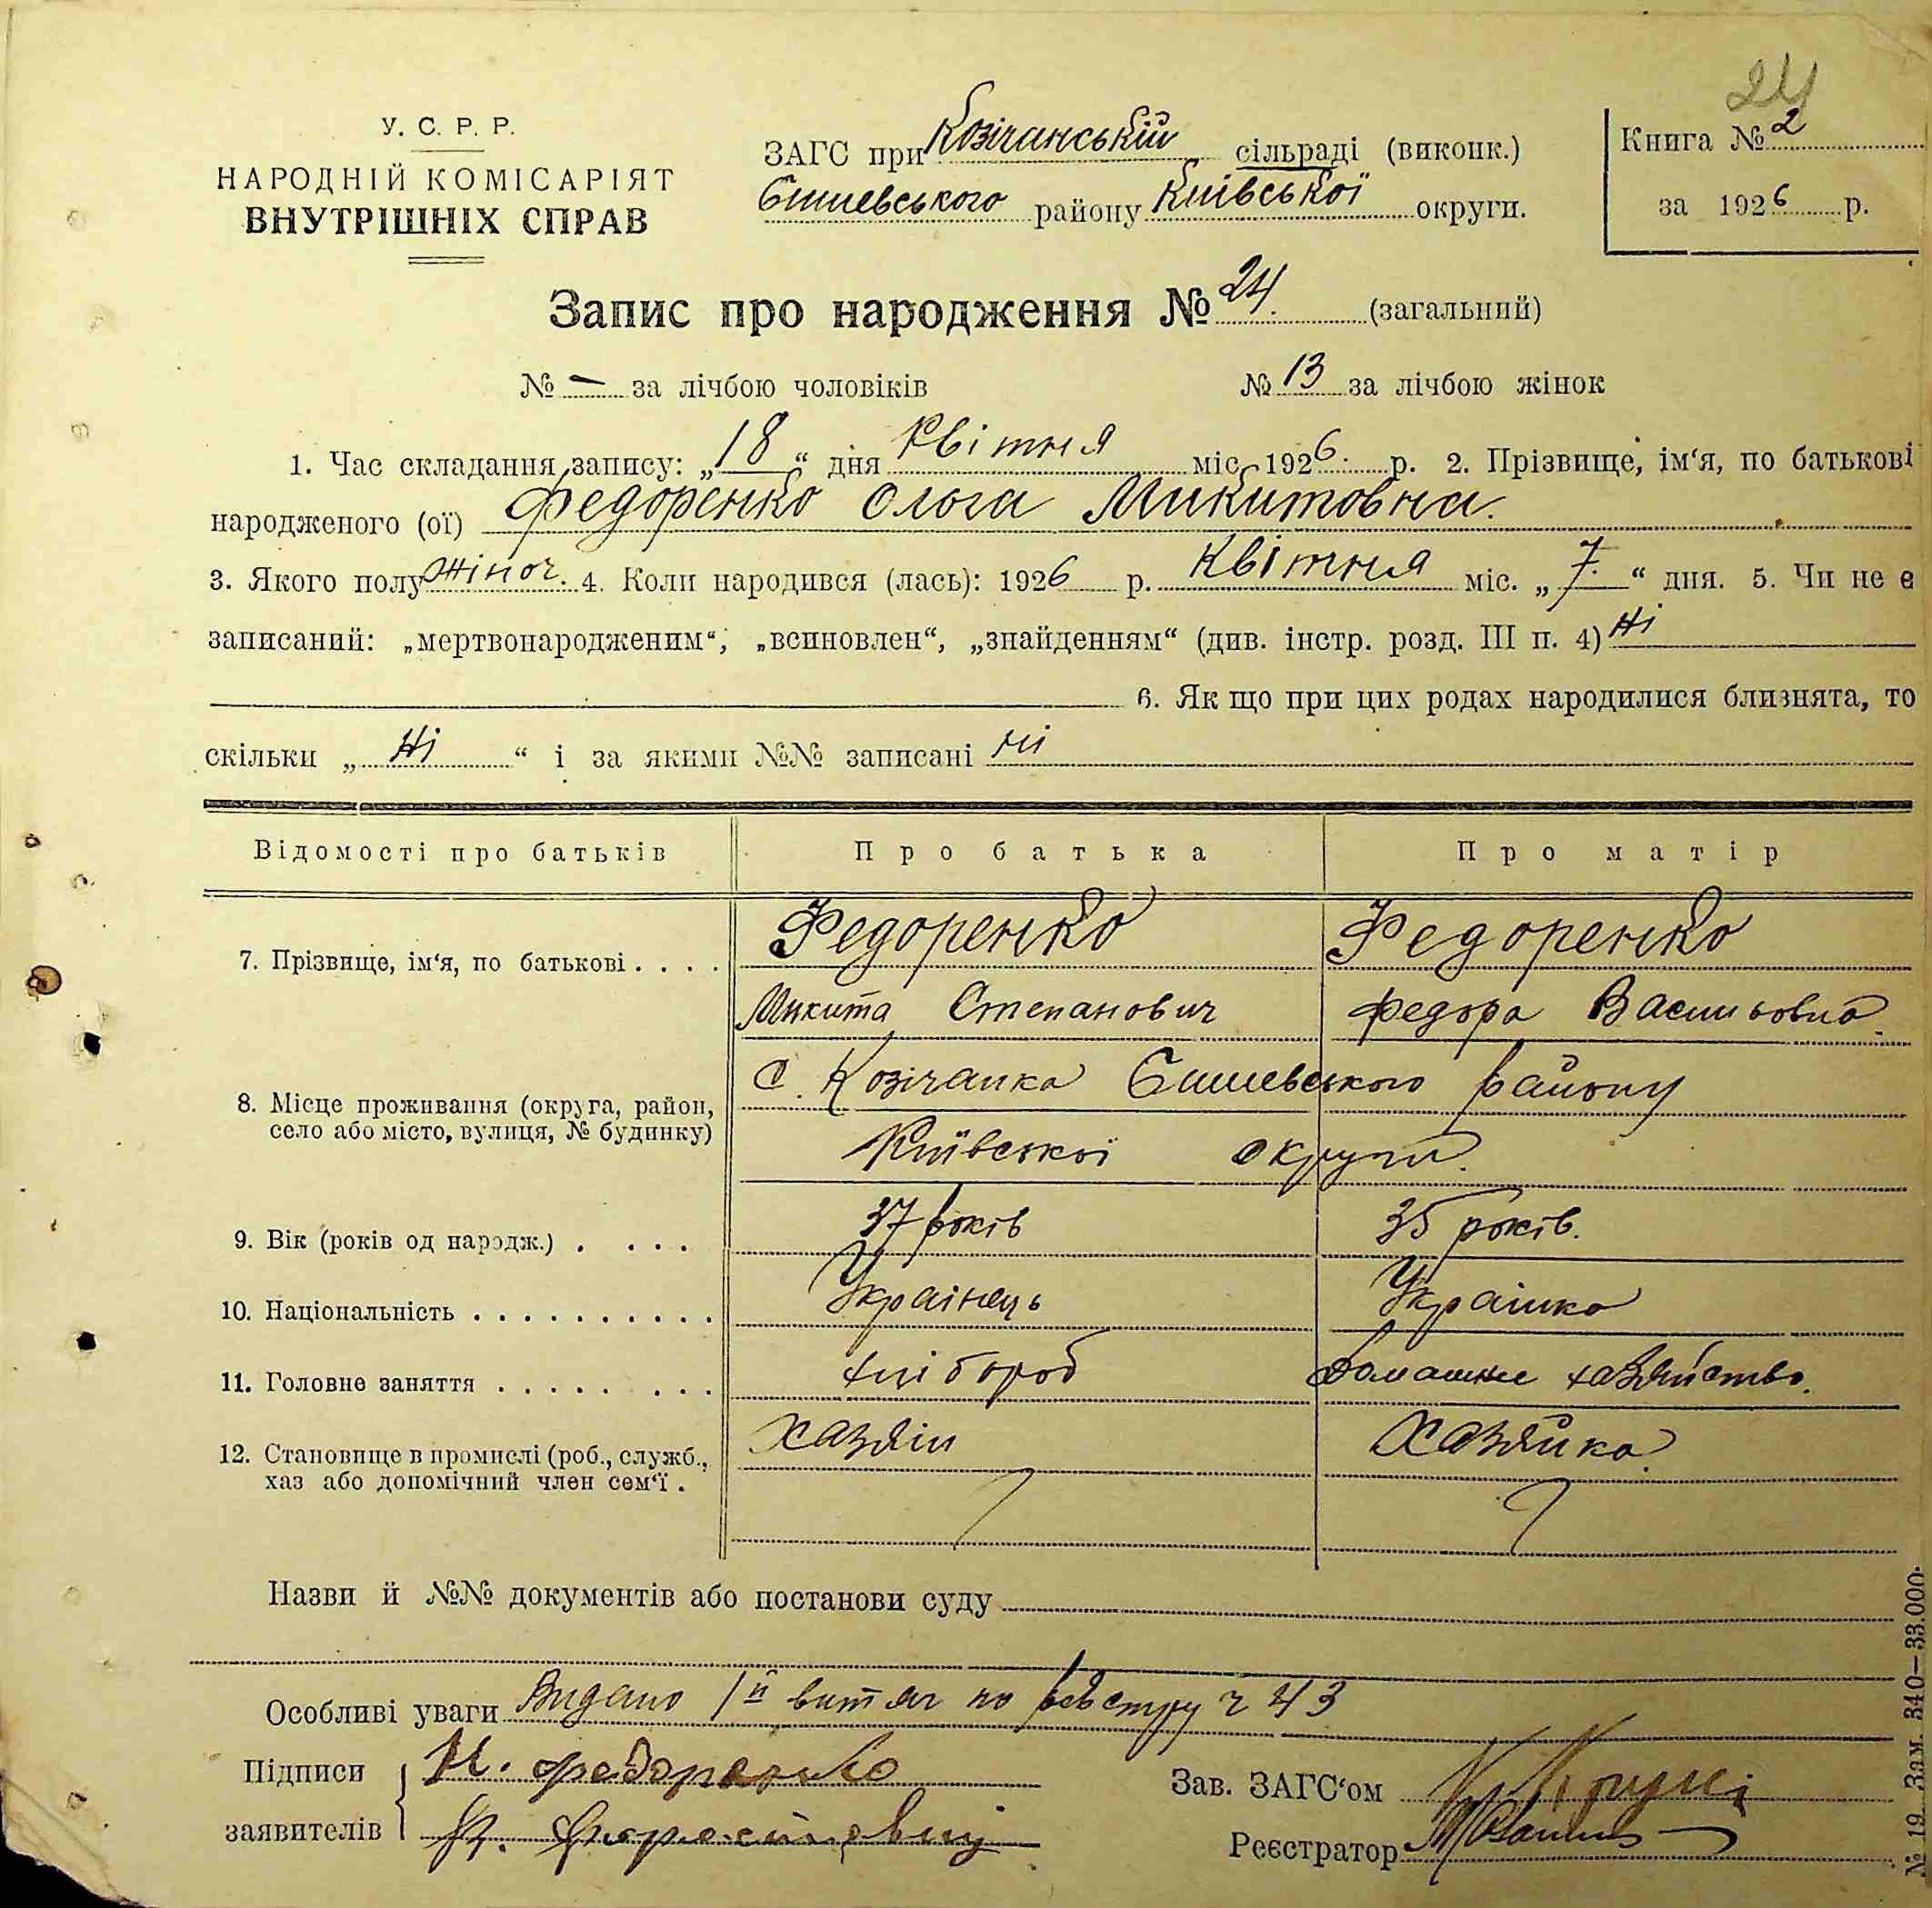 24
У. С. Р. Р.
НАРОДНІЙ КОМІСАРІЯТ
ВНУТРІШНІХ СПРАВ
ЗАГС при Козічанській сільраді (виконк.)
Єишевського району Київської округи.
Книга № 2
за 1926 р.
Запис про народження № 24. (загальний)
№ — за лічбою чоловіків № 13 за лічбою жінок
1. Час складання запису: „18“ дня Квітня міс. 1926. р. 2. Прізвище, ім‘я, по батькові
народженого (ої) Федоренко Ольга Микитовна.
3. Якого полу жіноч. 4. Коли народився (лась): 1926 р. Квітня міс. „7.“ дня. 5. Чи не є
записаний: „мертвонародженим“, „всиновлен“, „знайденням“ (див. інстр. розд. III п. 4) Ні
6. Як що при цих родах народилися близнята, то
скільки „Ні“ і за якими №№ записані ні
Відомості про батьків Про батька Про матір
7. Прізвище, ім‘я, по батькові . . . . Федоренко Федоренко
Микита Степанович Федора Васильовна.
8. Місце проживання (округа, район, село або місто, вулиця, № будинку) С. Козічанка Єишевського району
Київської округи.
9. Вік (років од народж.) . . . . 37 років 35 років.
10. Національність . . . . . . . . . . Українець Українка
11. Головне заняття . . . . . . . . хлібороб Домашнє хазяйство.
12. Становище в промислі (роб., служб., хаз або допомічний член сем‘ї . Хазяїн Хазяйка.
Назви й №№ документів або постанови суду
Особливі уваги Видано 1й витяг по реєстру ч 43
Підписи заявителів М. Федоренко
Зав. ЗАГС‘ом
Реєстратор
№ 19. Зам. 340—33.000.